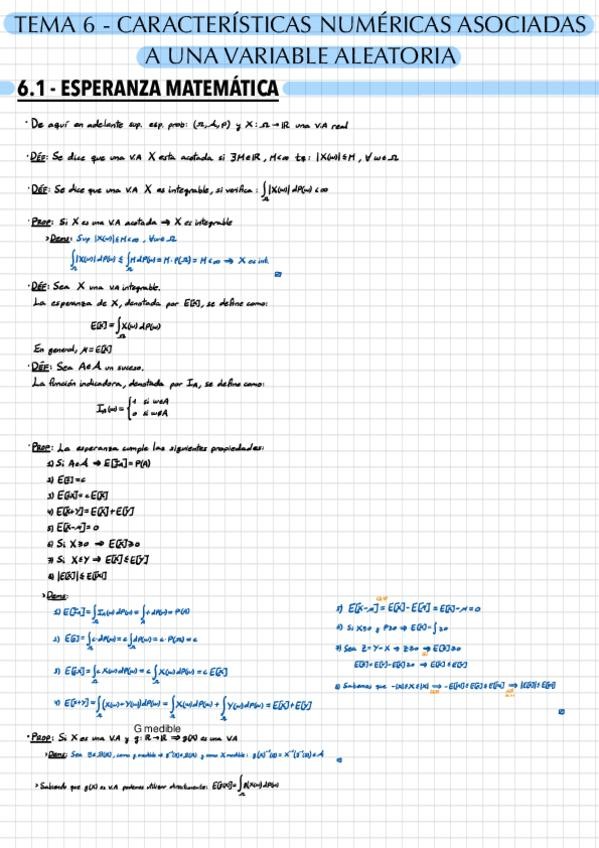 TEMA 6 - CARACTERÍSTICAS NUMÉRICAS ASOCIADAS
A UNA VARIABLE ALEATORIA
6.1 - ESPERANZA MATEMÁTICA
· De aquí en adelante sup. esp. prob: (Ω,A,P) y X: Ω→ℝ una V.A real
· DEF: Se dice que una V.A X está acotada si ∃M∈ℝ, M<∞ tq: |X(ω)|≤M, ∀ω∈Ω
· DEF: Se dice que una V.A X es integrable, si verifica: ∫_Ω |X(ω)| dP(ω) <∞
· PROP: Si X es una V.A acotada ⇒ X es integrable
> Dems: Sup |X(ω)|≤M<∞, ∀ω∈Ω
∫_Ω |X(ω)| dP(ω) ≤ ∫_Ω M dP(ω) = M·P(Ω) = M<∞ ⇒ X es int.
· DEF: Sea X una V.A integrable.
La esperanza de X, denotada por E[X], se define como:
E[X] = ∫_Ω X(ω) dP(ω)
En general, μ=E[X]
· DEF: Sea A∈A un suceso.
La función indicadora, denotada por I_A, se define como:
I_A(ω) = { 1 si ω∈A
0 si ω∉A
· PROP: La esperanza cumple las siguientes propiedades:
1) Si A∈A ⇒ E[I_A]=P(A)
2) E[c]=c
3) E[cX]=cE[X]
4) E[X+Y]=E[X]+E[Y]
5) E[X-μ]=0
6) Si X≥0 ⇒ E[X]≥0
7) Si X≤Y ⇒ E[X]≤E[Y]
8) |E[X]|≤E[|X|]
> Dems:
1) E[I_A]=∫_Ω I_A(ω) dP(ω) = ∫_A 1 dP(ω) = P(A)
2) E[c]=∫_Ω c dP(ω) = c ∫_Ω dP(ω) = c·P(Ω) = c
3) E[cX]=∫_Ω c X(ω) dP(ω) = c ∫_Ω X(ω) dP(ω) = c E[X]
4) E[X+Y]=∫_Ω (X(ω)+Y(ω)) dP(ω) = ∫_Ω X(ω) dP(ω) + ∫_Ω Y(ω) dP(ω) = E[X]+E[Y]
5) E[X-μ] = E[X]-E[μ] = E[X]-μ = 0
6) Si X≥0 y P≥0 ⇒ E[X]=∫≥0
7) Sea Z=Y-X ⇒ Z≥0 ⇒ E[Z]≥0
E[Z]=E[Y]-E[X]≥0 ⇒ E[X]≤E[Y]
8) Sabemos que -|X|≤X≤|X| ⇒ -E[|X|]≤E[X]≤E[|X|] ⇒ |E[X]|≤E[|X|]
G medible
· PROP: Si X es una V.A y g: ℝ→ℝ ⇒ g(X) es una V.A
> Dems: Sea B∈B(ℝ), como g medible ⇒ g⁻¹(B)∈B(ℝ) y como X medible:
> Sabiendo que g(X) es V.A podemos utilizar directamente: E[g(X)]=∫_Ω g(X(ω)) dP(ω)